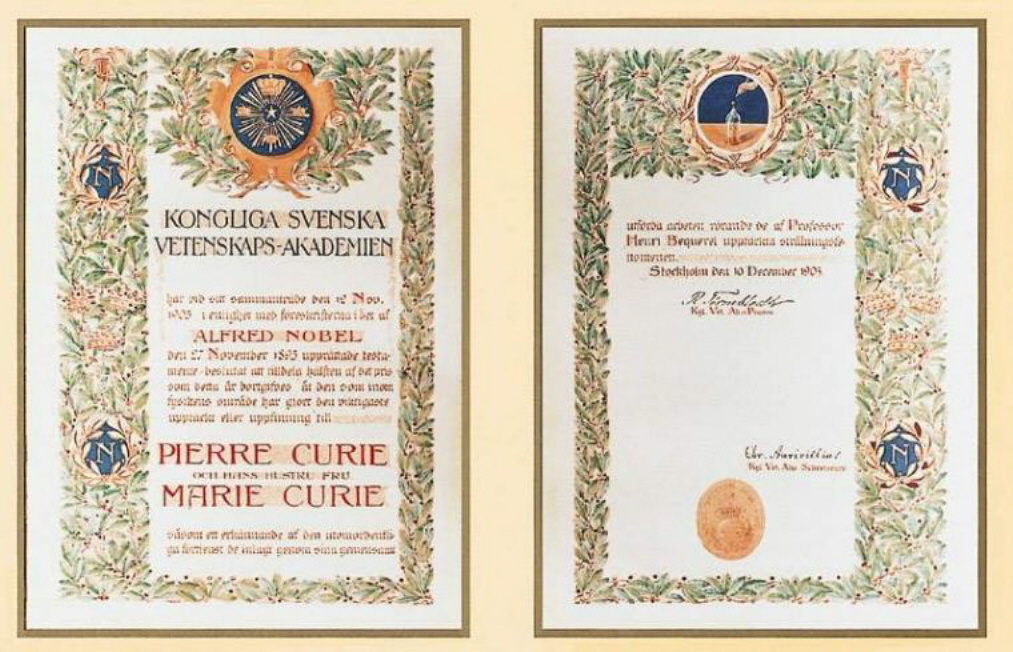 KONGLIGA SVENSKA
VETENSKAPS-AKADEMIEN
har vid sitt sammanträde den 12 Nov.
1903 i enlighet med föreskrifterna i det af
ALFRED NOBEL
den 27 November 1895 upprättade testa-
mente beslutat att tilldela hälften af det pris
som detta år bortgifves åt den som inom
fysikens område har gjort den viktigaste
upptäckt eller uppfinning till
PIERRE CURIE
OCH HANS HUSTRU FRU
MARIE CURIE
såsom ett erkännande af den utomordentli-
ga förtjenst de inlagt genom sina gemensamt
N
N
utförda arbeten rörande de af Professor
Henri Bequerel upptäckta strålningsfe-
nomenen.
Stockholm den 10 December 1903
Kgl. Vet. Ak:s Præses
Chr. Aurivillius
Kgl. Vet. Ak:s Sekreterare
N
N